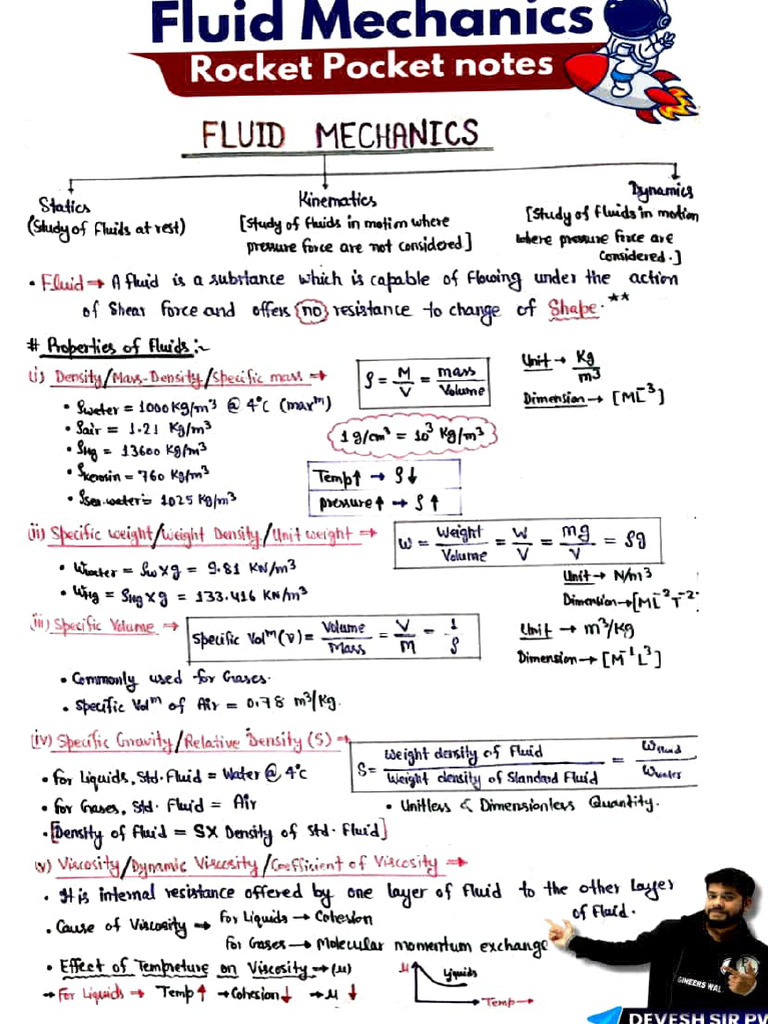 Fluid Mechanics
Rocket Pocket notes
FLUID MECHANICS
Statics
(Study of Fluids at rest)
Kinematics
[Study of fluids in motion where
pressure force are not considered]
Dynamics
[Study of fluids in motion
where pressure force are
considered.]
• Fluid → A fluid is a substance which is capable of flowing under the action
of Shear force and offers (no) resistance to change of Shape.**
# Properties of Fluids :-
(i) Density/Mass-Density/Specific mass →
ρ = M/V = mass/Volume
Unit → Kg/m³
Dimension → [ML⁻³]
• ρwater = 1000 Kg/m³ @ 4°C (maxᵐ)
• ρair = 1.21 Kg/m³
• ρHg = 13600 Kg/m³
• ρkerosin = 760 Kg/m³
• ρSea-water = 1025 Kg/m³
1 g/cm³ = 10³ Kg/m³
Temp↑ → ρ↓
pressure↑ → ρ↑
(ii) Specific weight/Weight Density/Unit weight →
W = Weight/Volume = W/V = mg/V = ρg
• Wwater = ρw×g = 9.81 KN/m³
• WHg = ρHg×g = 133.416 KN/m³
Unit → N/m³
Dimension → [ML⁻²T⁻²
(iii) Specific Volume →
Specific Volᵐ(ν) = Volume/Mass = V/M = 1/ρ
Unit → m³/Kg
Dimension → [M⁻¹L³]
• Commonly used for Gases.
• Specific Volᵐ of Air = 0.78 m³/Kg.
(iv) Specific Gravity/Relative Density (S) →
S = Weight density of Fluid/Weight density of Standard Fluid = Wfluid/Wwater
• for Liquids, Std. Fluid = Water @ 4°C
• for Gases, Std. Fluid = Air
• Unitless & Dimensionless Quantity.
• [Density of Fluid = S × Density of Std. Fluid]
(v) Viscosity/Dynamic Viscosity/Coefficient of Viscosity →
• It is internal resistance offered by one layer of fluid to the other layer
of fluid.
• Cause of Viscosity → for Liquids → Cohesion
for Gases → Molecular momentum exchange
• Effect of Tempreture on Viscosity → (μ)
→ For Liquids → Temp↑ → Cohesion↓ → μ↓
μ
Liquids
Temp →
GINEERS WAL
DEVESH SIR PW